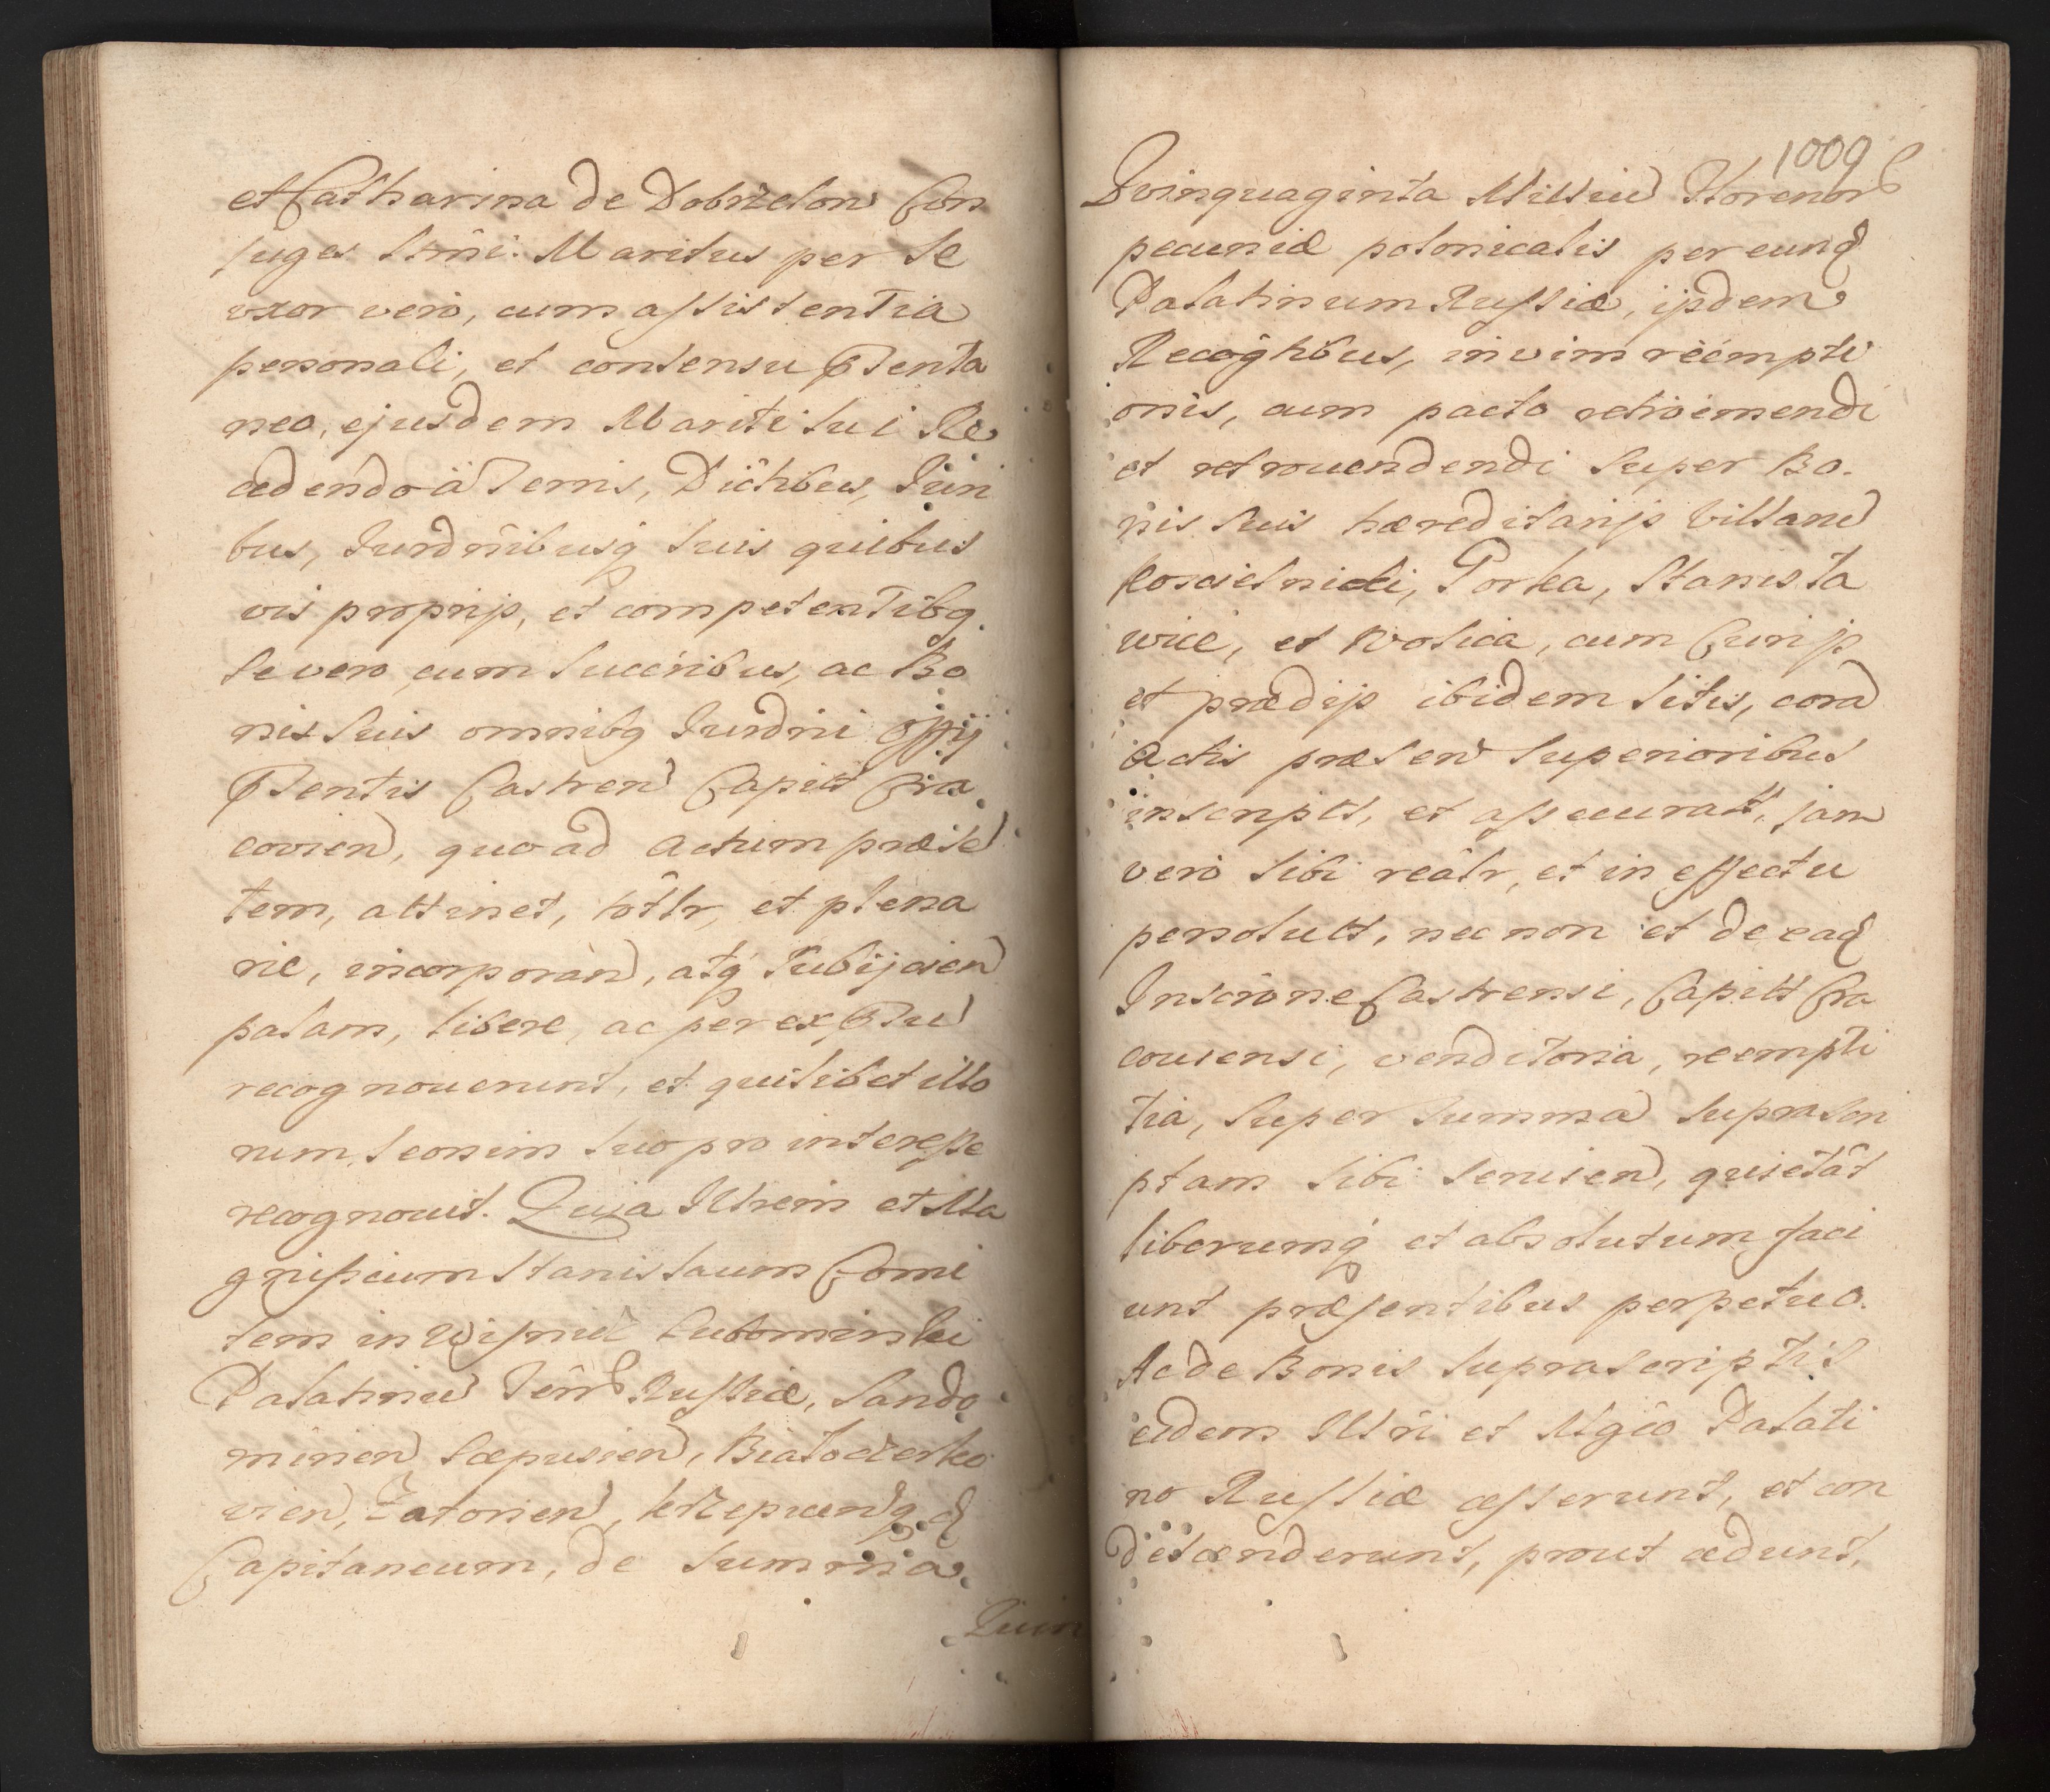 et Catharina de Dobrzelow Con
juges ltmi. Maritus per se
uxor vero, cum assistentia
personali, et consensu pnta
neo, ejusdem Mariti sui Re
cedendo à Terris, Dictibus, Juri
bus, Jurdnibusq suis quibus
vis proprijs, et competentibq
se vero cum succribus, ac Bo
nis suis omnibq Jurdni offij
pntis Castren Capitt Cra
covien, quoad actum præsen
tem, attinet, totlr, et plena
rie, incorporan, atq subijcien
palam, libere, ac per expssu
recognouerunt, et quilibet illo
rum seorsim suo pro interesse
recognouit. Quia Illrem et Ma
gnificum Stanislaum Comi
tem in Wisnicz Lubomirski
Palatinu Terr Russiæ, Sando
mirien Scepusien, Białocerko
vien, Zatorien, krzepicenq &
Capitaneum, de summa
Quin
1009
Qvinquaginta Milliu Florenor
pecuniæ polonicalis per eund
Palatinum Russiæ, ijsdem
Recogtibus, in vim reempti
onis, cum pacto retroemendi
et retrouendendi super Bo.
nis suis hæreditarijs Villaru
Koscielniki, Gorka, Stanisla
wice, et Wolica, cum Curijs
et prædijs ibidem sitis, cora
actis præsen superioribus
inscriptis, et assecuratt, jam
vero sibi realr, et in effectu
persolutt, nec non et de ead
Inscrõne Castrensi, Capitt Cra
couiensi, venditoria, reempti
tia, super summa suprascri
ptam sibi seruien, quietat
liberumq et absolutum faci
unt præsentibus perpetuo.
Ac de Bonis suprascriptis
eidem Illri et Mgco Palati
no Russiæ cesserunt, et con
descenderunt, prout cedunt,